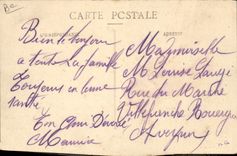 CARTE POSTALE
CORRESPONDANCE
Bien le bonjour
à toute la famille
Toujours en bonne
santé
Ton
Maurice
Mademoiselle
M Louise
Rue du Marché
Villefranche Rouergue
Aveyron